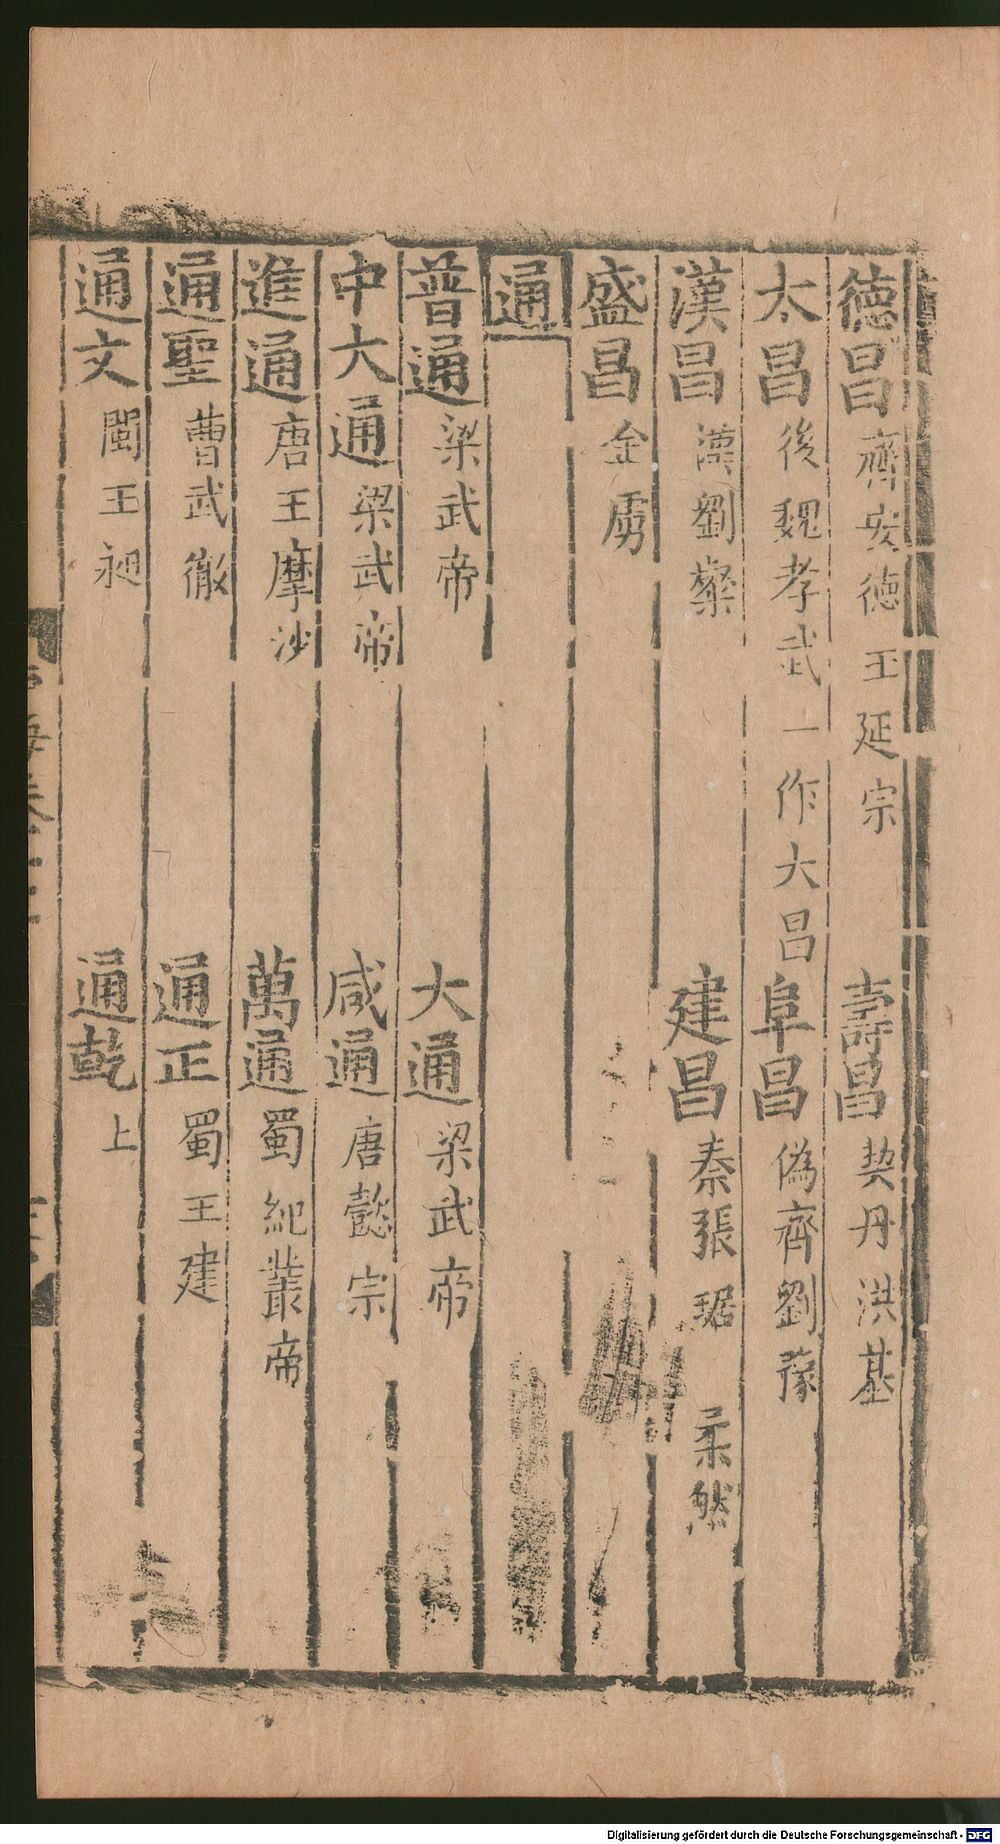 德昌 齊安德王延宗 壽昌 契丹洪基
太昌 後魏孝武一作大昌 阜昌 偽齊劉豫
漢昌 漢劉粲 建昌 秦張琚 柔然
盛昌 金虜
通
普通 梁武帝 大通 梁武帝
中大通 梁武帝 咸通 唐懿宗
進通 唐王摩沙 萬通 蜀紀叢帝
通聖 曹武徹 通正 蜀王建
通文 閩王昶 通乾 上
Digitalisierung gefördert durch die Deutsche Forschungsgemeinschaft - DFG